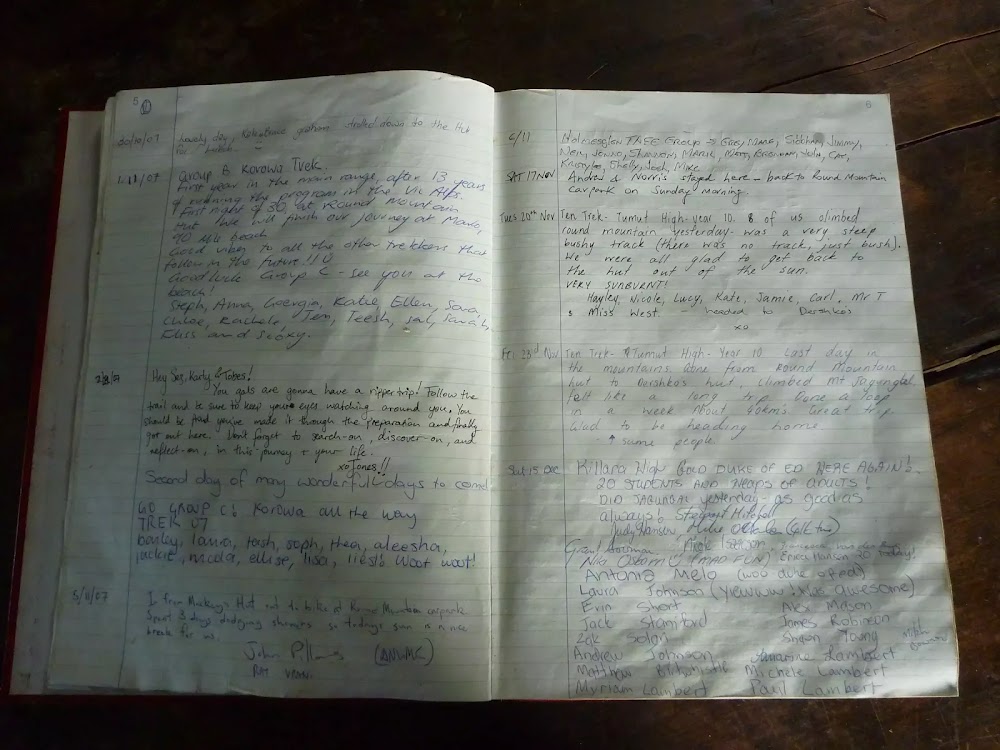 5
30/10/07 Lovely day, graham strolled down to the Hut
for
1/11/07 Group B Korowa Trek.
First year in the main range, after 13 years
of running the program in the Vic Alps.
First night of 30 at Round Mountain
Hut. We will finish our journey at Marlo,
90 Mile beach
Good vibes to all the other trekkers that
follow in the future!!
Good luck Group C - see you at the
beach!
Steph, Anna, Georgia, Katie, Ellen, Sara,
Chloe, Rachele, Jen, Teesh, Sal, Sarah,
and
Hey Karly & Tobes!
You gals are gonna have a ripper trip! Follow the
trail and be sure to keep your eyes watching around you. You
should be proud you've made it through the preparation and finally
got out here. Don't forget to search-on, discover-on, and
reflect-on, in this journey + your life.
xo Jones!!
Second day of many wonderful days to come!
GO GROUP C! Korowa all the way
TREK 07
bailey, laura, tash, steph, thea, aleesha,
jackie, nicola, ellise, lisa, Woot woot!
5/11/07 In from Mackeys Hut, out to bike at Round Mountain carpark
Spent 3 days dodging showers so todays sun is a nice
break for us.
John (ANUMC)
6
6/11 TAFE GROUP Gus, Siobhan, Jimmy,
Shannon,
Shelly, Josh, Mike
SAT 17 NOV Andrei & Norris stayed here - back to Round Mountain
Carpark on Sunday morning.
Tues 20th Nov Ten Trek- Tumut High- year 10. 8 of us climbed
round mountain yesterday- was a very steep
bushy track (there was no track, just bush).
We were all glad to get back to
the hut out of the sun.
VERY SUNBURNT!
Hayley, Nicole, Lucy, Kate, Jamie, Carl, Mr T
& Miss West. - headed to Dershkos
xo
Fri 23rd Nov Ten Trek- Tumut High- Year 10. Last day in
the mountains. Gone from Round Mountain
hut to Dershko's hut, climbed Mt Jagungal,
felt like a long trip. Done a loop
in a week about 40km's. Great trip
Glad to be heading home
↑ same people
Sat 15 Dec Killara High Gold Duke of Ed HERE AGAIN!
20 STUDENTS AND HEAPS OF ADULTS!
DID JAGUNGAL yesterday- as good as
always! Stewart Mitchell
Judy Mike
Grant
Nia (MAD FUN) Erica Hanson 20 today!
Antonia Melo (woo duke of ed)
Laura Johnson awesome)
Erin Short Alex Mason
Jack Stamford James Robinson
Zak Solan Shawn Young
Andrew Johnson Lambert
Matthew Michele Lambert
Myriam Lambert Paul Lambert